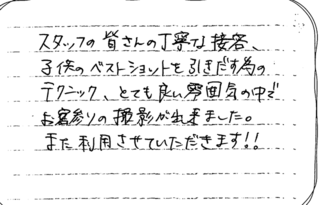 スタッフの皆さんの丁寧な接客、
子供のベストショットを引きだす為の
テクニック、とても良い雰囲気の中で
お宮参りの撮影が出来ました。
また利用させていただきます!!